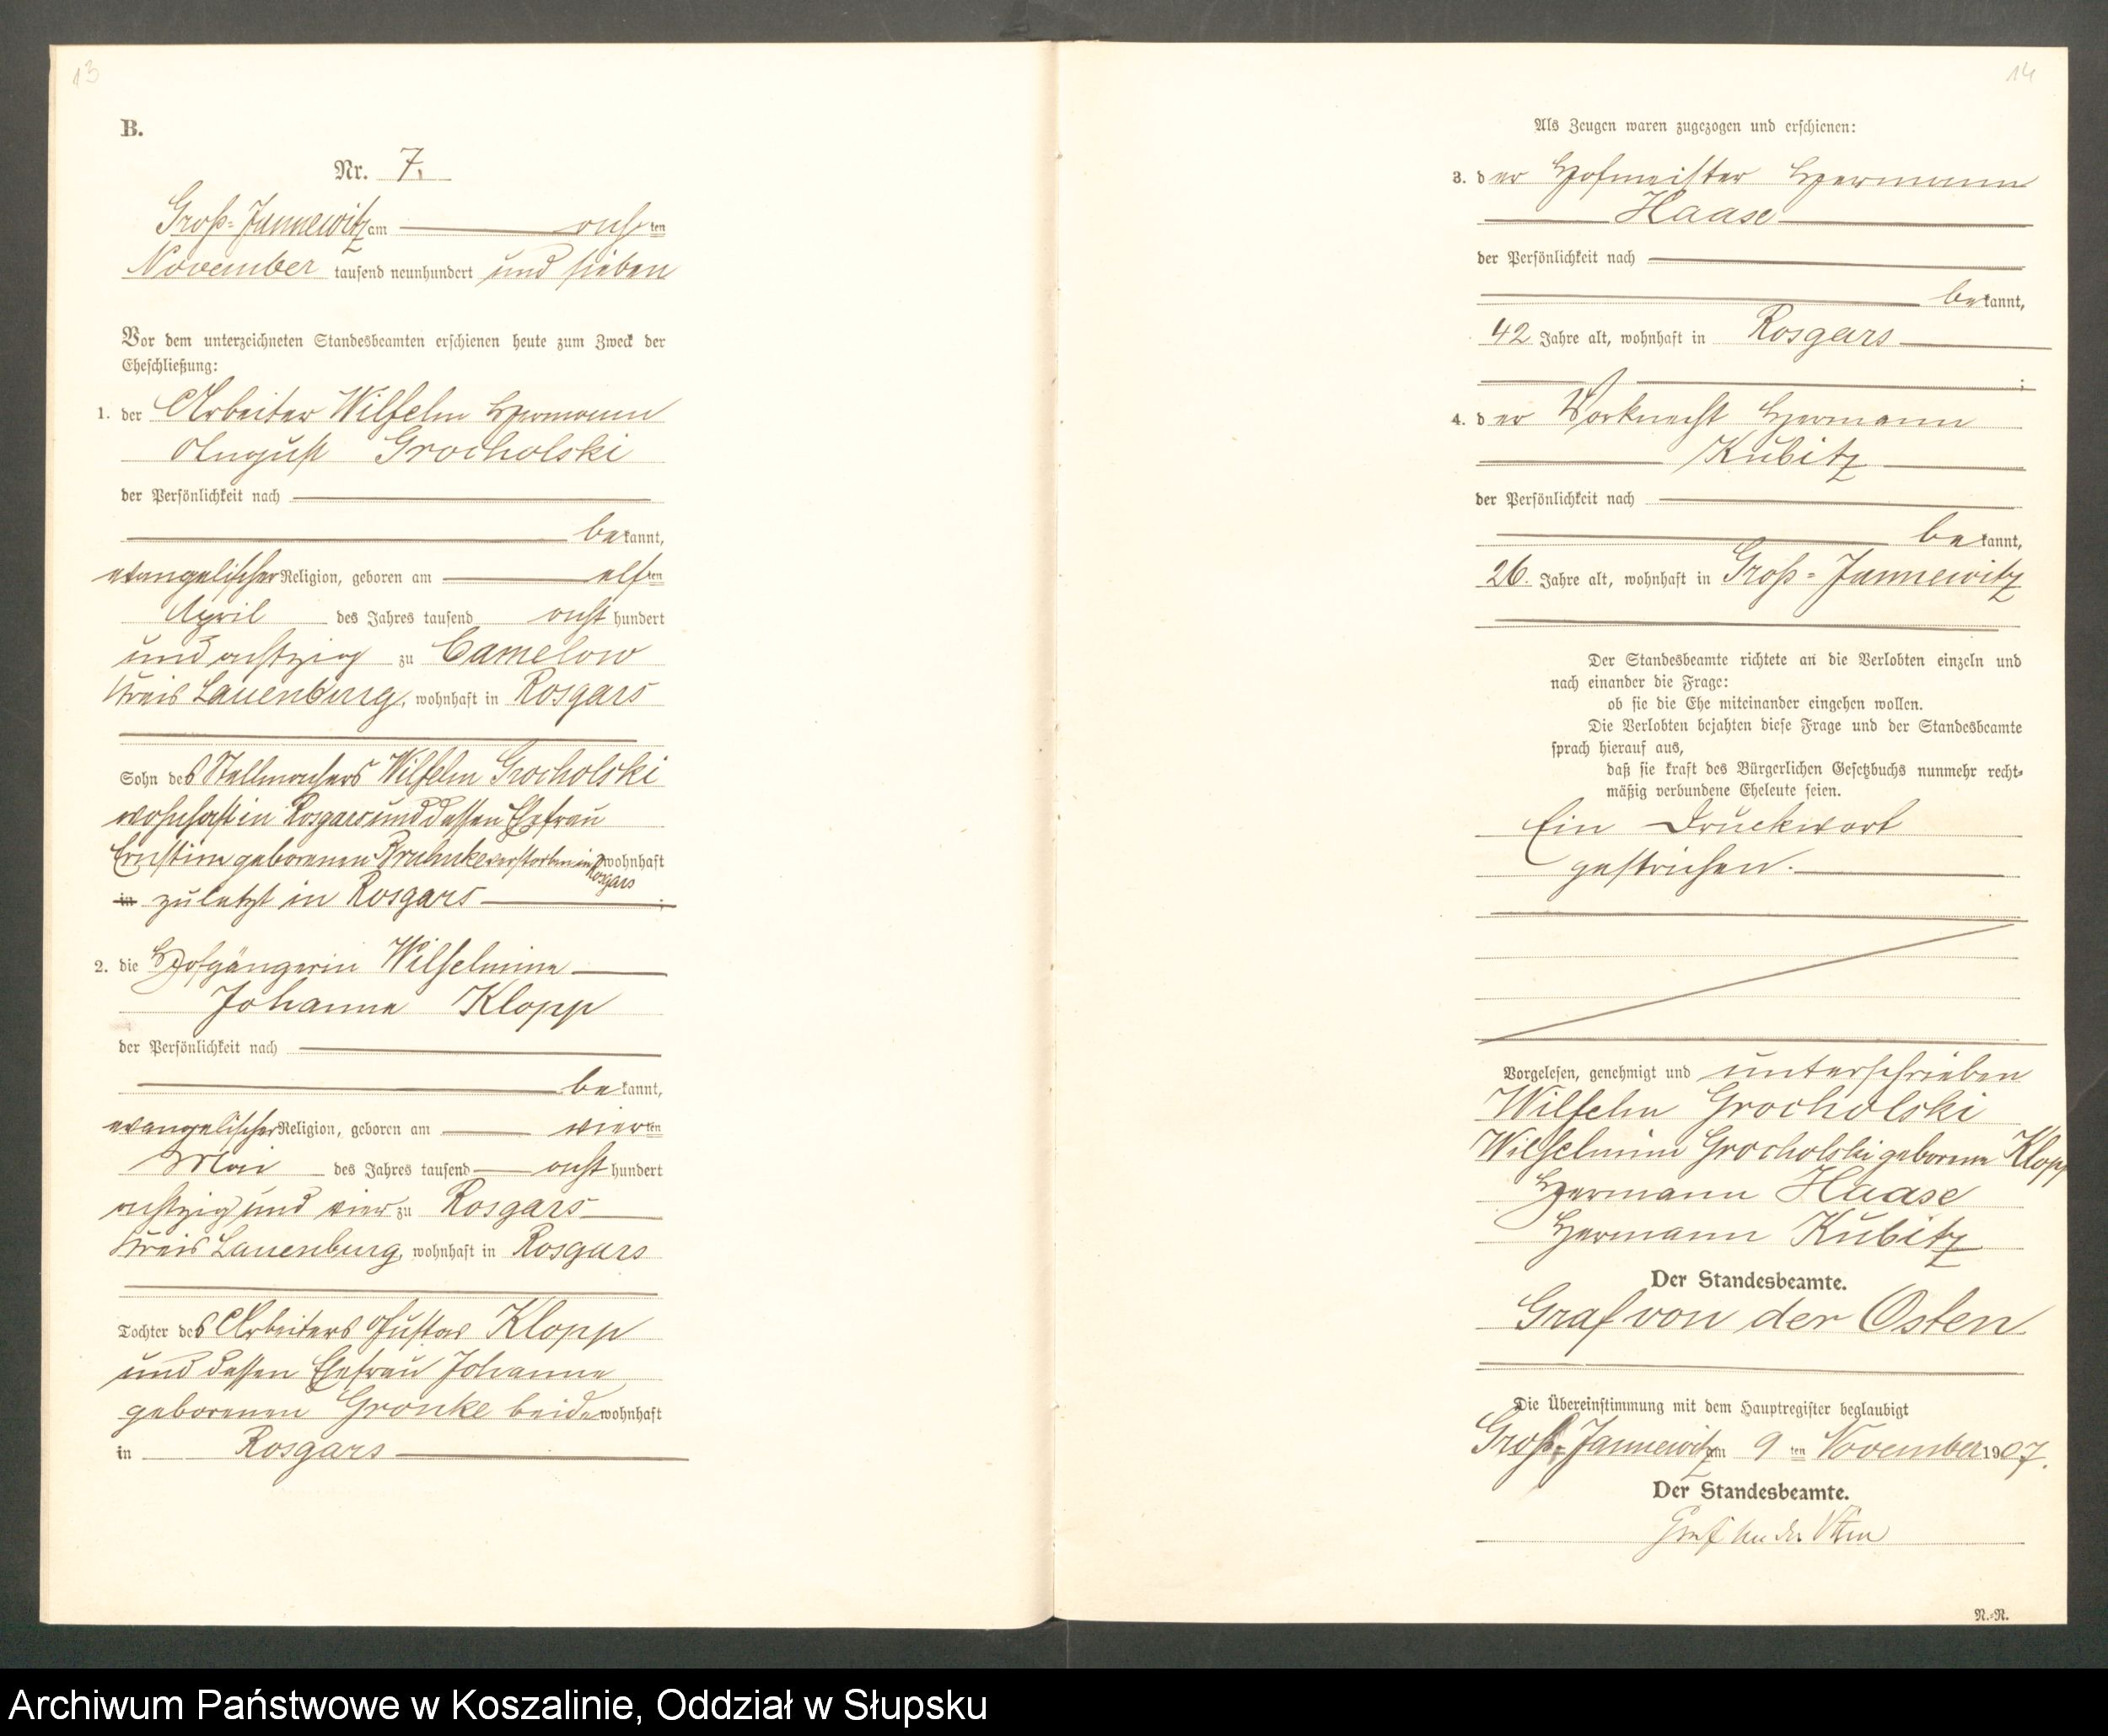 13
B.
Nr. 7.
Groß-Jannewitz am acht ten
November tausend neunhundert und sieben
Vor dem unterzeichneten Standesbeamten erschienen heute zum Zweck der
Eheschließung:
1. der Arbeiter Wilhelm Hermann
August Grocholski
der Persönlichkeit nach
be kannt,
evangelischer Religion, geboren am elf ten
April des Jahres tausend acht hundert
und achtzig zu Camelow
Kreis Lauenburg, wohnhaft in Rosgars
Sohn des Stellmachers Wilhelm Grocholski
wohnhaft in Rosgars und dessen Ehefrau
Ernstine geborenen verstorben in Rosgars wohnhaft
in zuletzt in Rosgars ;
2. die Hofgängerin Wilhelmine
Johanna Klopp
der Persönlichkeit nach
be kannt,
evangelischer Religion, geboren am vier ten
Mai des Jahres tausend acht hundert
achtzig und vier zu Rosgars
Kreis Lauenburg, wohnhaft in Rosgars
Tochter des Arbeiters Gustav Klopp
und dessen Ehefrau Johanne
geborenen Gronke beide wohnhaft
in Rosgars
14
Als Zeugen waren zugezogen und erschienen:
3. d er Hofmeister Hermann
Haase
der Persönlichkeit nach
be kannt,
42 Jahre alt, wohnhaft in Rosgars
;
4. d er Vorknecht Hermann
Kubitz
der Persönlichkeit nach
be kannt,
26. Jahre alt, wohnhaft in Groß-Jannewitz
Der Standesbeamte richtete an die Verlobten einzeln und
nach einander die Frage:
ob sie die Ehe miteinander eingehen wollen.
Die Verlobten bejahten diese Frage und der Standesbeamte
sprach hierauf aus,
daß sie kraft des Bürgerlichen Gesetzbuchs nunmehr recht-
mäßig verbundene Eheleute seien.
Ein Druckwort
gestrichen.
Vorgelesen, genehmigt und unterschrieben
Wilhelm Grocholski
Wilhelmine Grocholski geborene Klopp
Hermann Haase
Hermann Kubitz
Der Standesbeamte.
Graf von der Osten
Die Übereinstimmung mit dem Hauptregister beglaubigt
Groß-Jannewitz am 9 ten November 1907.
Der Standesbeamte.
Graf von der Osten
N.-N.
Archiwum Państwowe w Koszalinie, Oddział w Słupsku